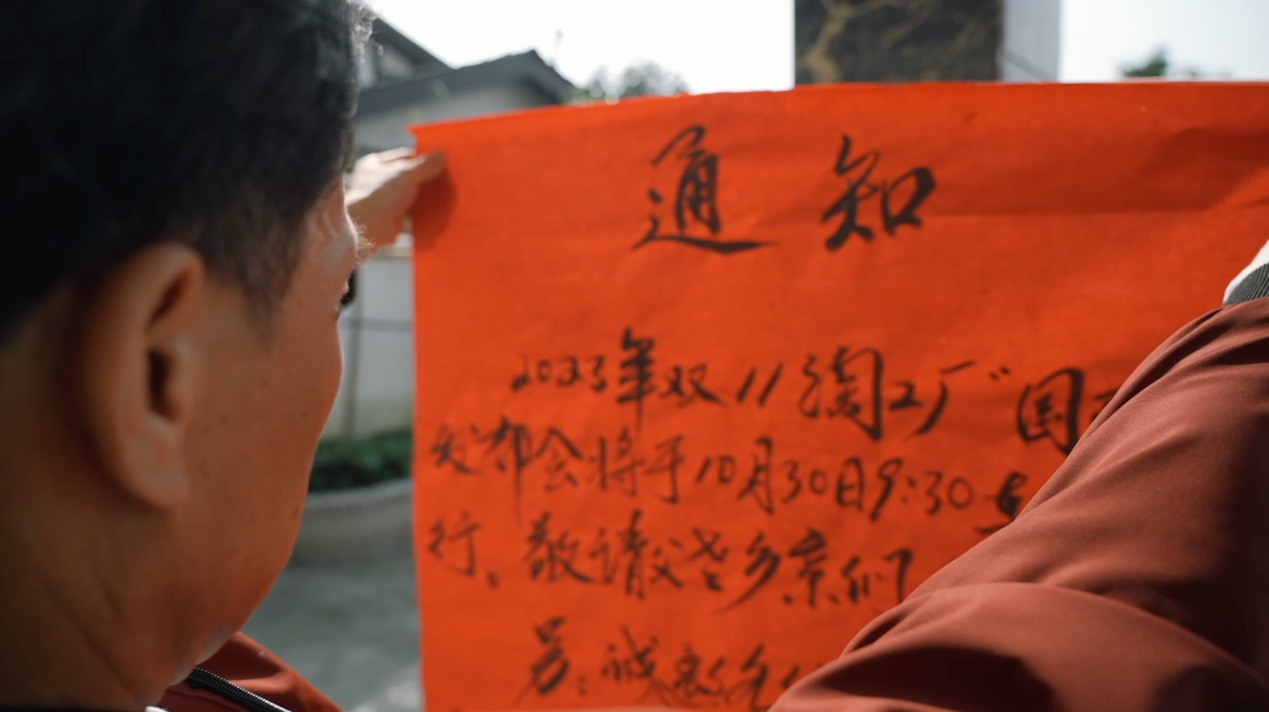 通知
2023年双11淘工厂"国
发布会将于10月30日9:30
行。敬请父老乡亲们
另:诚邀